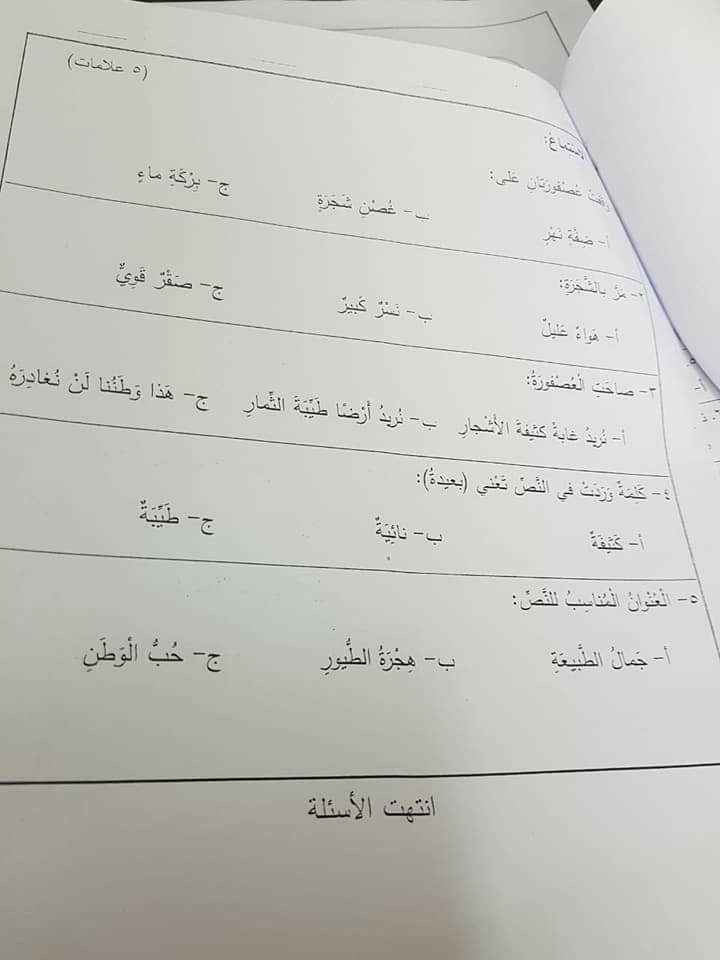 (٥ علامات)
الاستماع:
وقفت عُصْفورَتانِ عَلى:
أ- ضِفَّةِ نَهْرٍ ب- غُصْنِ شَجَرَةٍ ج- بِرْكَةِ ماءٍ
٢- مَرَّ بِالشَّجَرَةِ:
أ- هَواءٌ عَليلٌ ب- نَسْرٌ كَبيرٌ ج- صَقْرٌ قَوِيٌّ
٣- صاحَتِ الْعُصْفورَةُ:
أ- نُريدُ غابةً كَثيفَةَ الأَشْجارِ ب- نُريدُ أَرْضًا طَيِّبَةَ الثِّمارِ ج- هَذا وَطَنُنا لَنْ نُغادِرَهُ
٤- كَلِمَةٌ وَرَدَتْ في النَّصِّ تَعْني (بعيدةُ):
أ- كَثيفَةٌ ب- نائِيَةٌ ج- طَيِّبَةٌ
٥- الْعُنْوانُ الْمُناسِبُ للنَّصِّ:
أ- جَمالُ الطَّبيعَةِ ب- هِجْرَةُ الطُّيورِ ج- حُبُّ الْوَطَنِ
انتهت الأسئلة